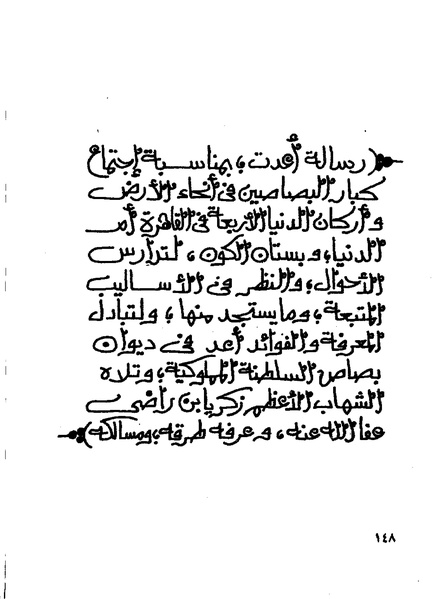 (رسالة أعدت ، بمناسبة إجتماع
كبار البصاصين في أنحاء الأرض
و أركان الدنيا الأربعة في القاهرة أم
الدنيا ، و بستان الكون ، لتدارس
الأحوال ، و النظر في الأساليب
المتبعة ، و ما يستجد منها ، و لتبادل
المعرفة و الفوائد أعد في ديوان
بصاص السلطنة المملوكية ، و تلاه
الشهاب الأعظم زكريا بن راضي
عفا الله عنه ، و عرفه طرقه ، و مسالكه )
١٤٨